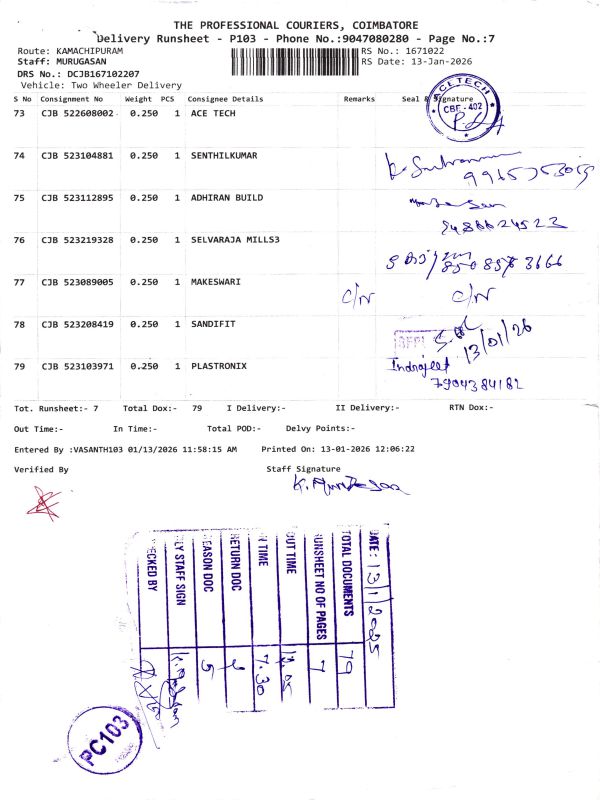 THE PROFESSIONAL COURIERS, COIMBATORE
Delivery Runsheet - P103 - Phone No.:9047080280 - Page No.:7
Route: KAMACHIPURAM RS No.: 1671022
Staff: MURUGASAN RS Date: 13-Jan-2026
DRS No.: DCJB167102207
Vehicle: Two Wheeler Delivery
S No Consignment No Weight PCS Consignee Details Remarks Seal & Signature
73 CJB 522608002 0.250 1 ACE TECH
ACE TECH
CBE-402
74 CJB 523104881 0.250 1 SENTHILKUMAR
75 CJB 523112895 0.250 1 ADHIRAN BUILD
9486624523
76 CJB 523219328 0.250 1 SELVARAJA MILLS3
8508563666
77 CJB 523089005 0.250 1 MAKESWARI C/N C/N
78 CJB 523208419 0.250 1 SANDIFIT
13/01/26
79 CJB 523103971 0.250 1 PLASTRONIX Indrajeet
7904384182
Tot. Runsheet:- 7 Total Dox:- 79 I Delivery:- II Delivery:- RTN Dox:-
Out Time:- In Time:- Total POD:- Delvy Points:-
Entered By :VASANTH103 01/13/2026 11:58:15 AM Printed On: 13-01-2026 12:06:22
Verified By Staff Signature
DATE: 13/1/2025
TOTAL DOCUMENTS 79
RUNSHEET NO OF PAGES 7
OUT TIME
IN TIME 7.30
RETURN DOC
REASON DOC 5
LY STAFF SIGN
ECKED BY
PC103